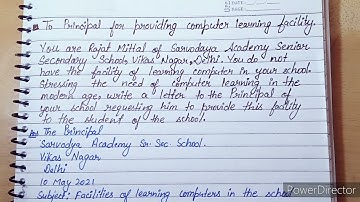 To Principal for providing computer learning facility.
You are Rajat Mittal of Sarvodaya Academy Senior
Secondary School, Vikas Nagar, Delhi. You do not
have the facility of learning computer in your school.
Stressing the need of computer learning in the
modern age, write a letter to the Principal of
your school requesting him to provide this facility
to the student of the school.
Ans The Principal
Sarvodya Academy Sr. Sec School.
Vikas Nagar
Delhi
10 May 2021
Subject: Facilities of learning computers in the school
PowerDirector